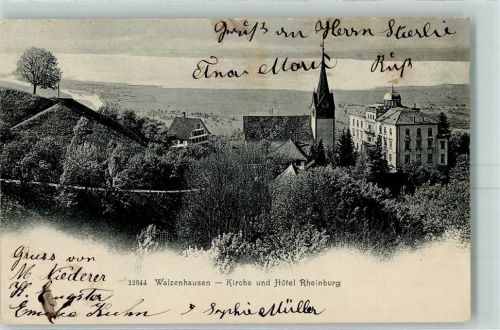 Gruß an Herrn Stierli
Marie Ruß
12644 Walzenhausen – Kirche und Hôtel Rheinburg
Gruss von
M Niederer
H. Engster
Emma Kuhn
Sophie Müller